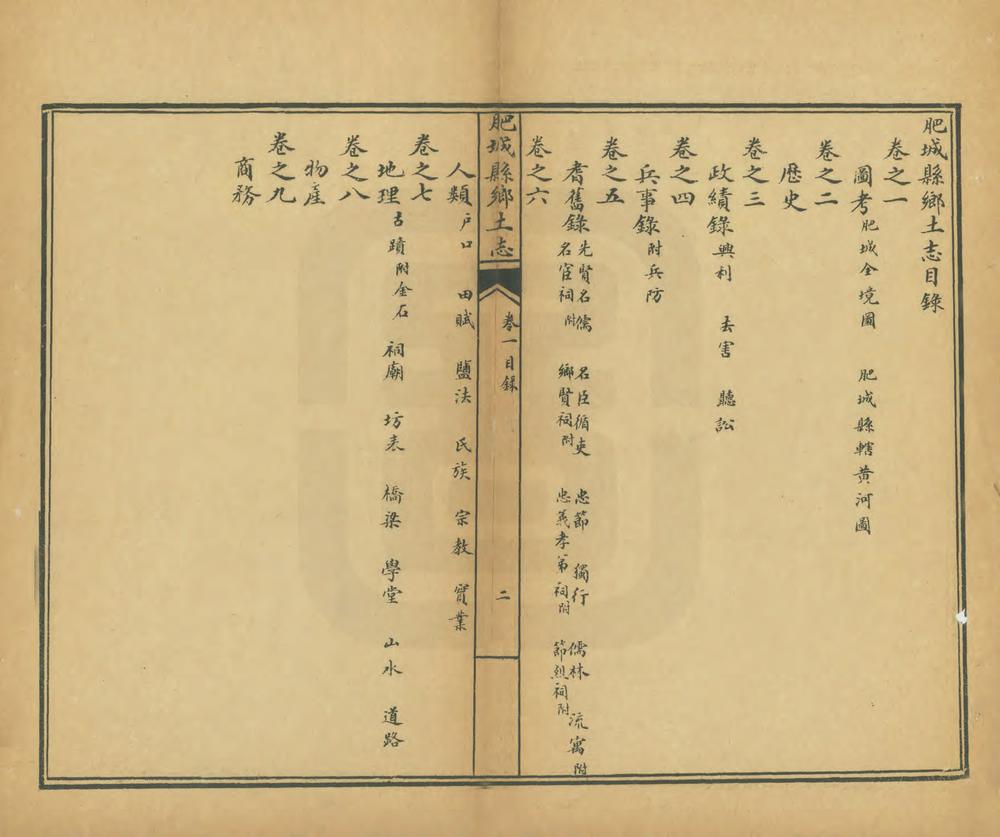 肥城縣鄉土志目錄
卷之一
圖考 肥城全境圖 肥城縣轄黄河圖
卷之二
歷史
卷之三
政績錄 興利 去害 聽訟
卷之四
兵事錄 附兵防
卷之五
耆舊錄 先賢名儒 名臣循吏 忠節 獨行 儒林 流寓附
名宦祠附 鄉賢祠附 忠義孝弟祠附 節烈祠附
卷之六
肥城縣鄉土志 卷一目錄 二
人類 户口 田賦 鹽法 氏族 宗教 實業
卷之七
地理 古蹟附金石 祠廟 坊表 橋梁 學堂 山水 道路
卷之八
物產
卷之九
商務